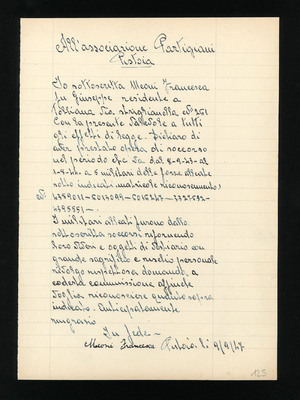 All'associazione Partigiani
Pistoia
Io sottoscritta Meoni Francesca
fu Giuseppe residente a
Via N° 251
Con la presente valevole a tutti
gli effetti di legge. Dichiaro di
aver prestato opera di soccorso
nel periodo che va dal 8-9-43 al
a 5 militari delle forze alleate
sotto indicati matricole riconoscimento,
N°
I militari alleati furono dalla
sottoscritta soccorsi rifornendo
loro viveri e oggetti di vestiario con
grande sagrificio e rischio personale
rivolgo rispettosa domanda, a
codesta commissione affinche
voglia riconoscere quanto sopra
indicato. Anticipatamente
ringrazio
In fede-
Meoni Francesca Pistoia. li 9/9/47
125